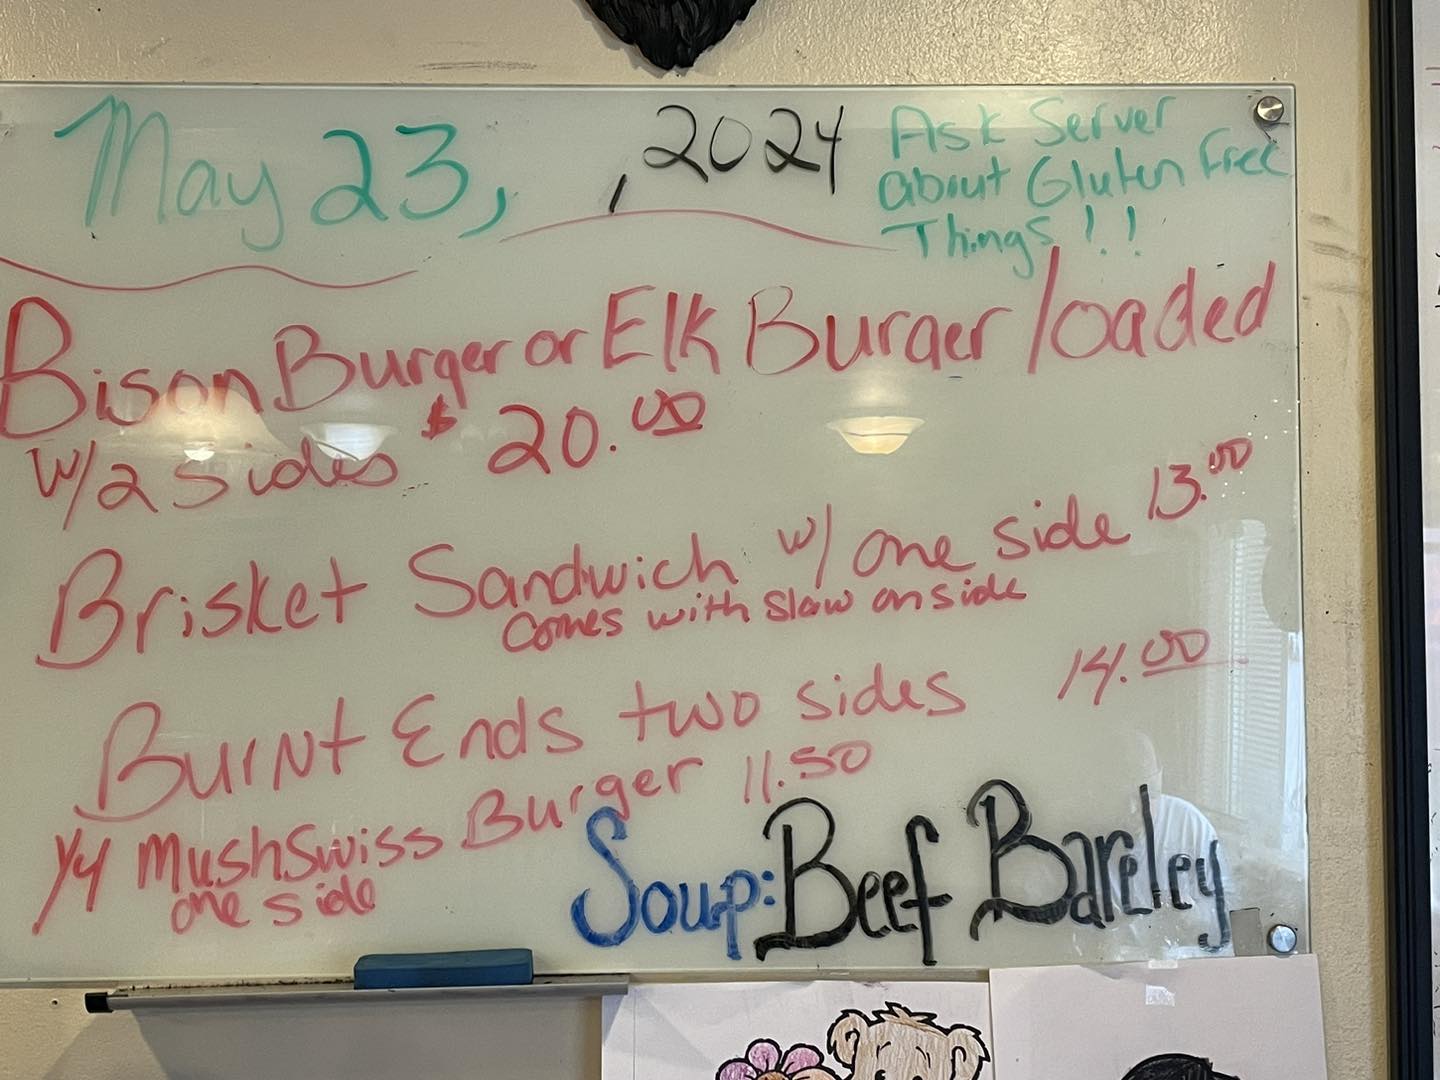 May 23, , 2024
Ask Server
about Gluten Free
Things!!
Bison Burger or Elk Burger loaded
w/2 sides $ 20.00
Brisket Sandwich w/ one side 13.00
comes with slaw on side
Burnt Ends two sides 14.00
1/4 MushSwiss Burger 11.50
one side
Soup: Beef Bareley